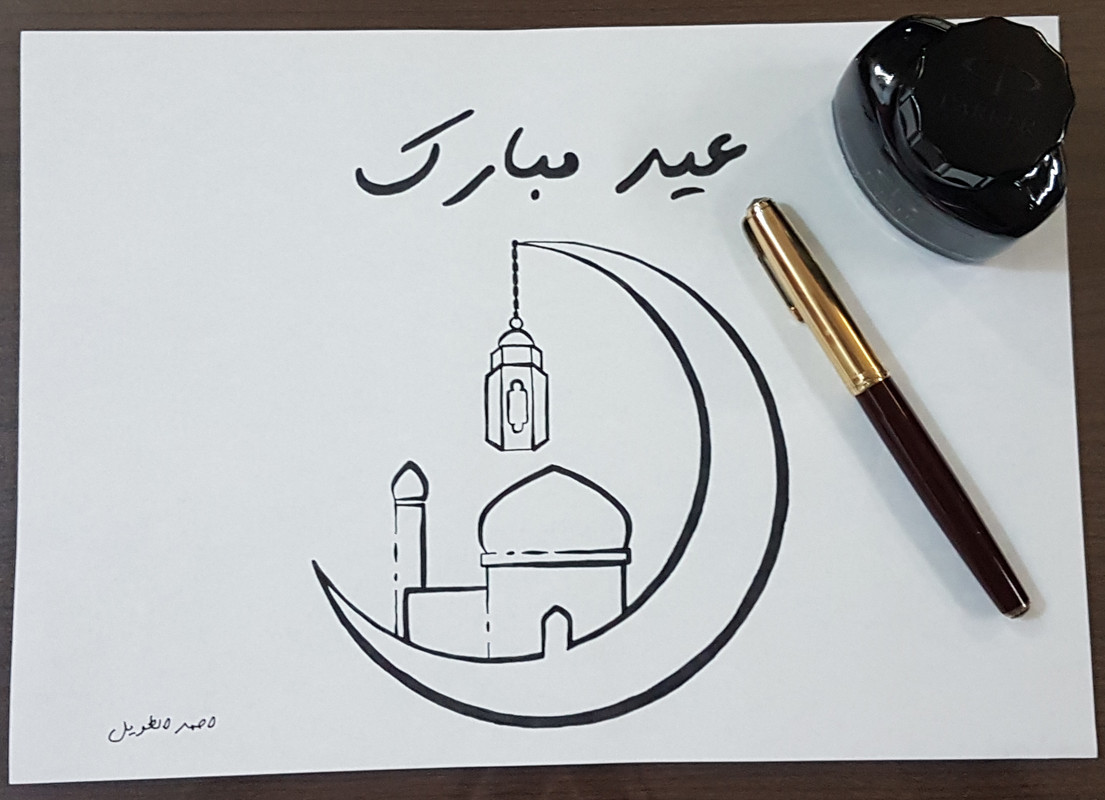 عيد مبارك
PARKER
احمد الطويل